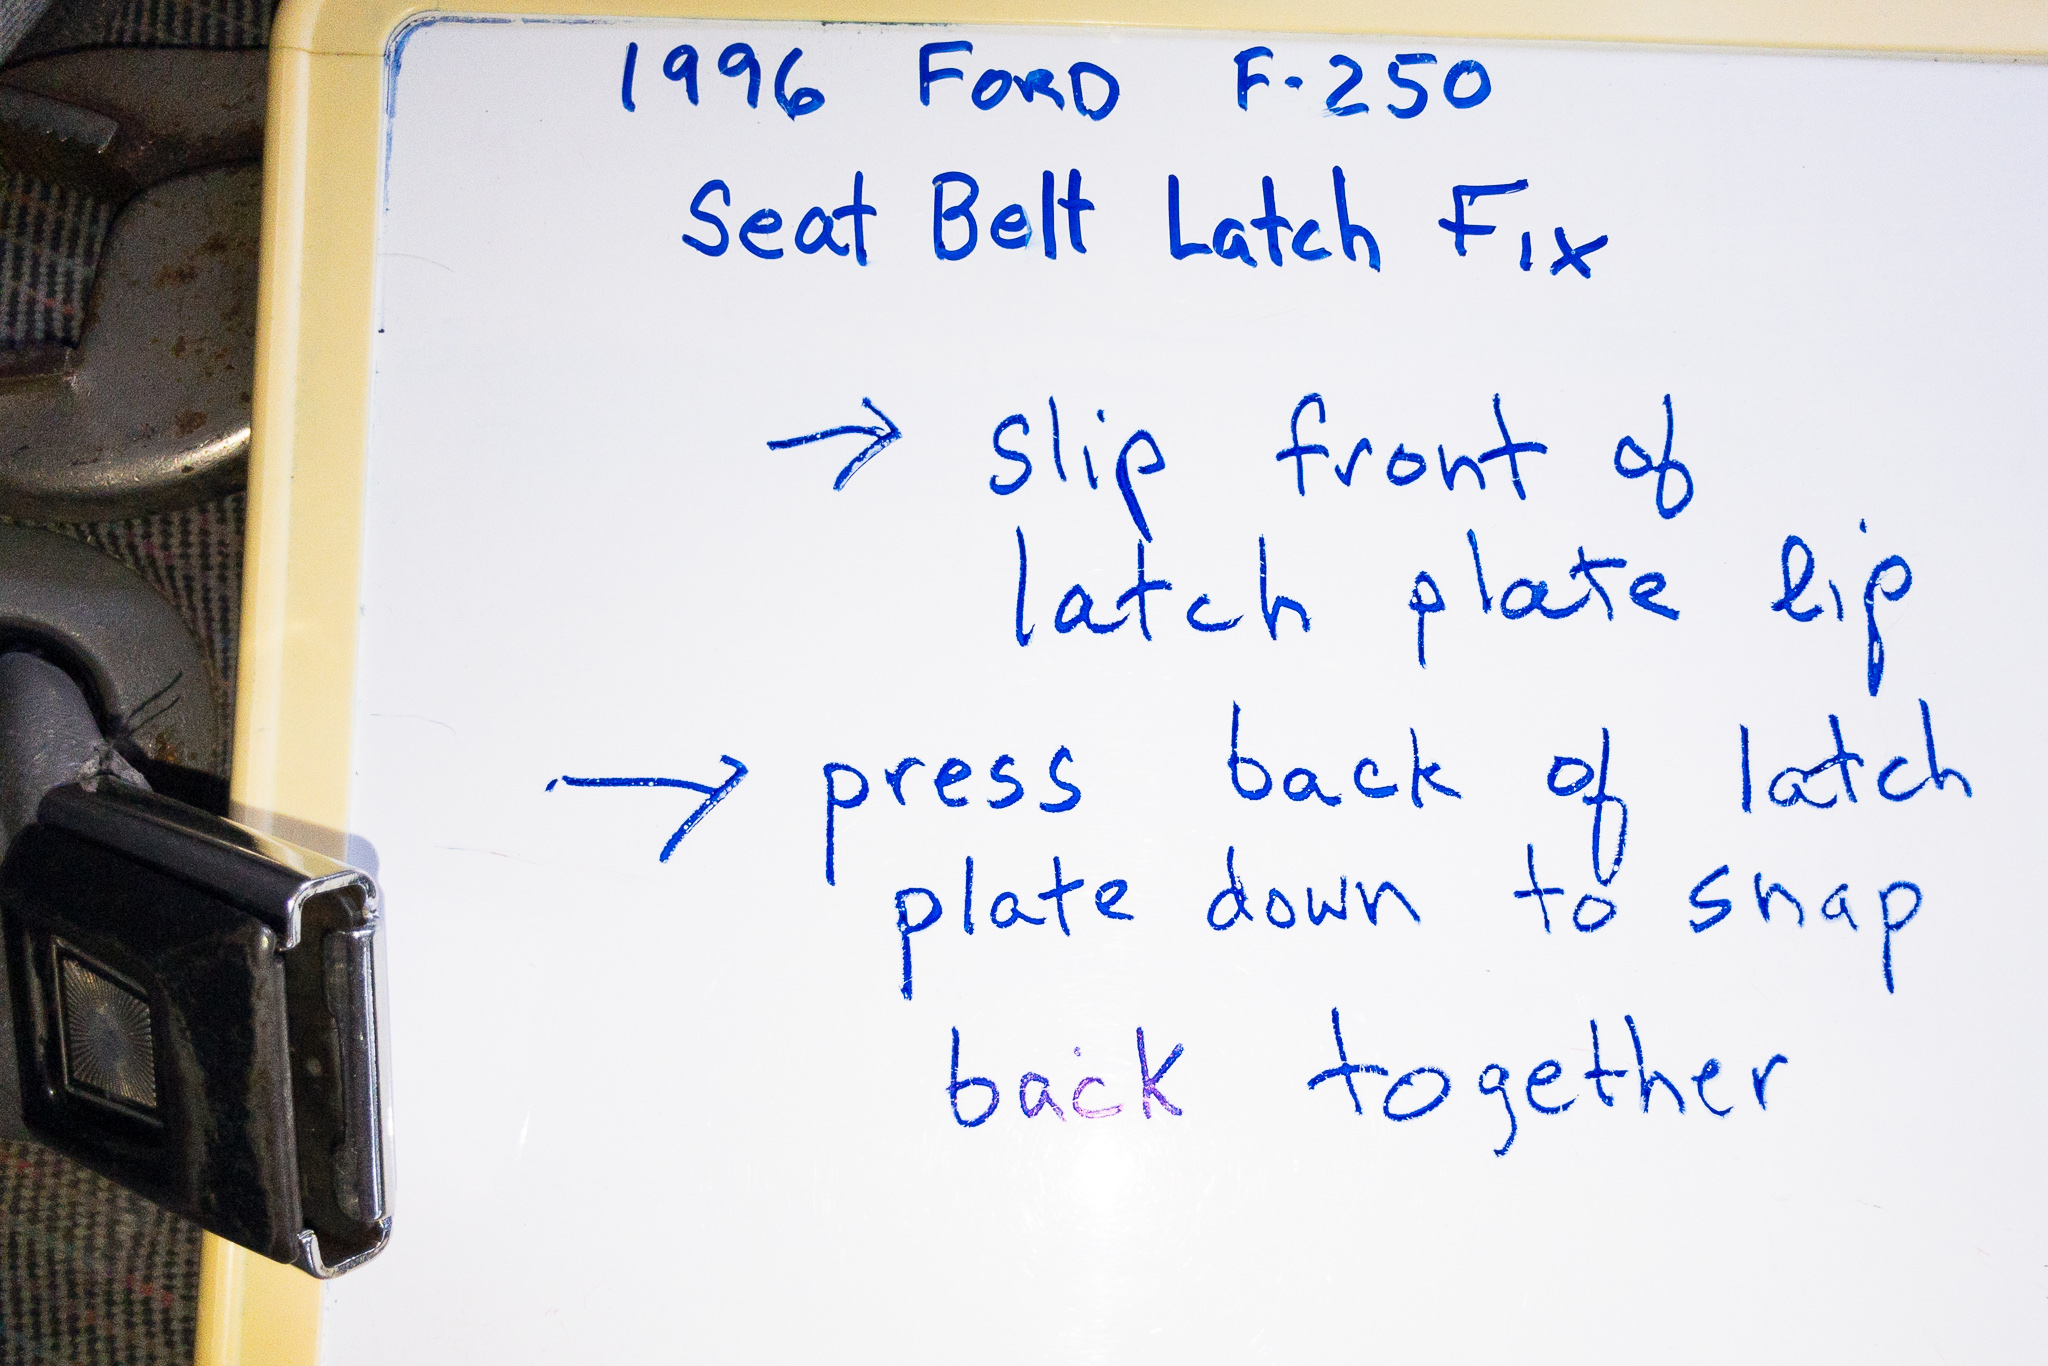 1996 FORD F-250
Seat Belt Latch Fix
→ slip front of
latch plate lip
→ press back of latch
plate down to snap
back together